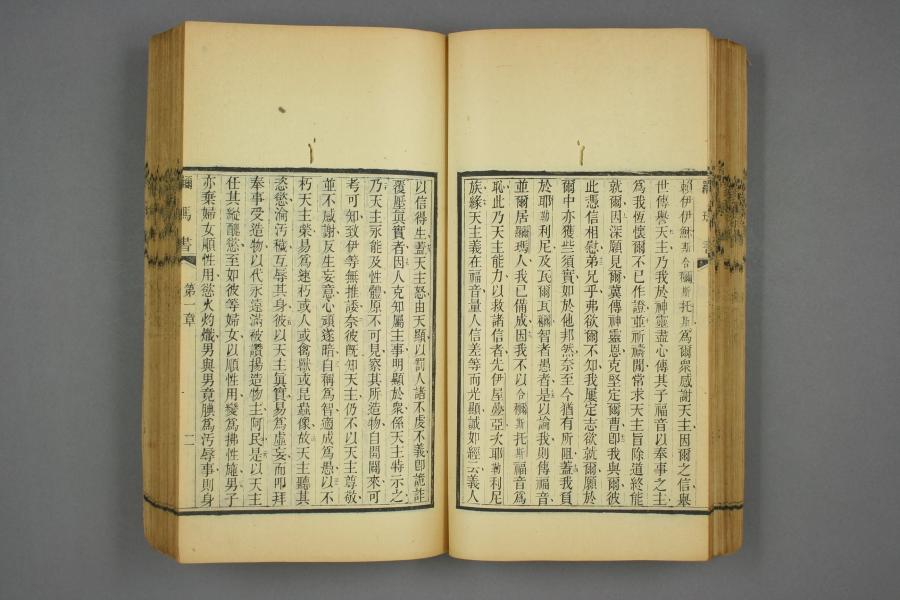 賴伊伊穌斯合爾斯托斯爲爾衆感謝天主因爾之信舉
世傳與天主乃我於神靈盡心傳其子福音以奉事之主
爲我恆懷爾不已作證並祈禱間常求天主旨除道終能
就爾因深願見爾冀傳神靈恩克堅定爾曹卽我與爾彼
此憑信相慰弟兄乎弗欲爾不知我屢定志欲就爾願於
爾中亦獲些須實如於他邦然奈至今猶有所阻蓋我負
於耶勒利尼及瓦爾瓦爾智者愚者是以論我則傳福音
並爾居爾瑪人我已備成因我不以合爾斯托斯福音爲
恥此乃天主能力以救諸信者先伊屋叠亞次耶勒利尼
族緣天主義在福音量人信差等而光顯誠如經云義人
以信得生蓋天主怒由天顯以罰人諸不虔不義卽詭詐
覆壓眞實者因人克知屬主事明顯於衆係天主特示之
乃天主永能及性體原不可見察其所造物自開闢來可
考可知致伊等無推諉奈彼旣知天主仍不以天主尊敬
並不感謝反生妄意心頑遂暗自稱爲智適成爲愚以不
朽天主榮易爲速朽或人或禽獸或昆蟲像故天主聽其
恣慾淪汚穢互辱其身彼以天主眞實易爲虛妄而叩拜
奉事受造物以代永遠滿被讚揚造物主阿民是以天主
任其縱醜慾至如彼等婦女以順性用變爲拂性施男子
亦棄婦女順性用慾火灼熾男與男竟腆爲汚辱事則身
爾瑪書 第一章 二